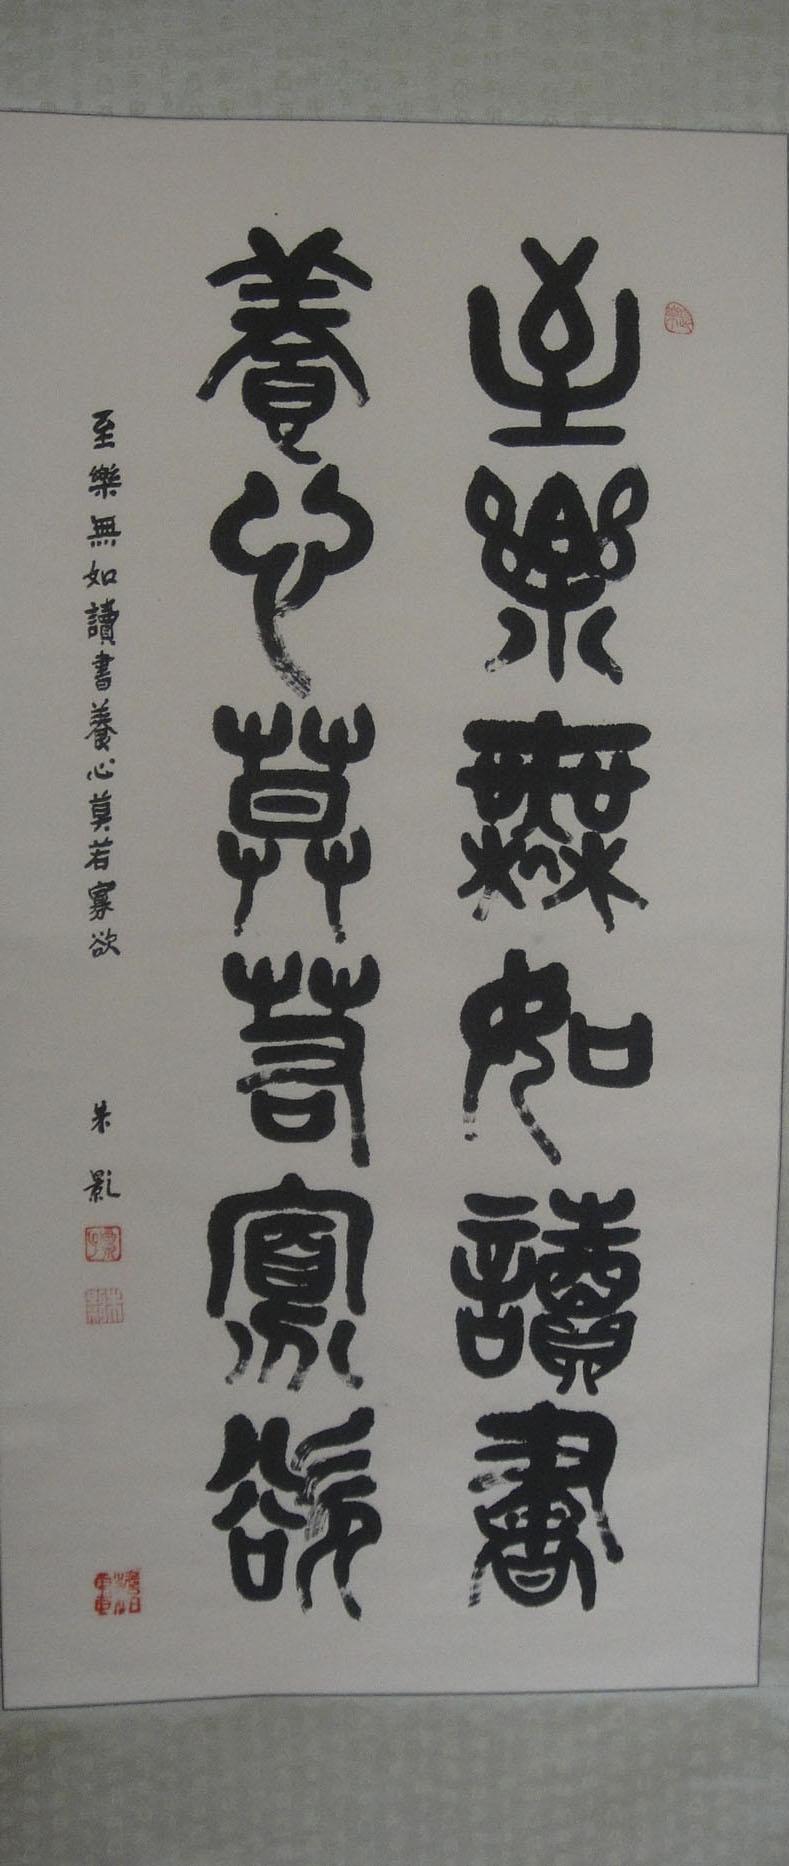 至樂無如讀書
養心莫若寡欲
至樂無如讀書養心莫若寡欲
朱影